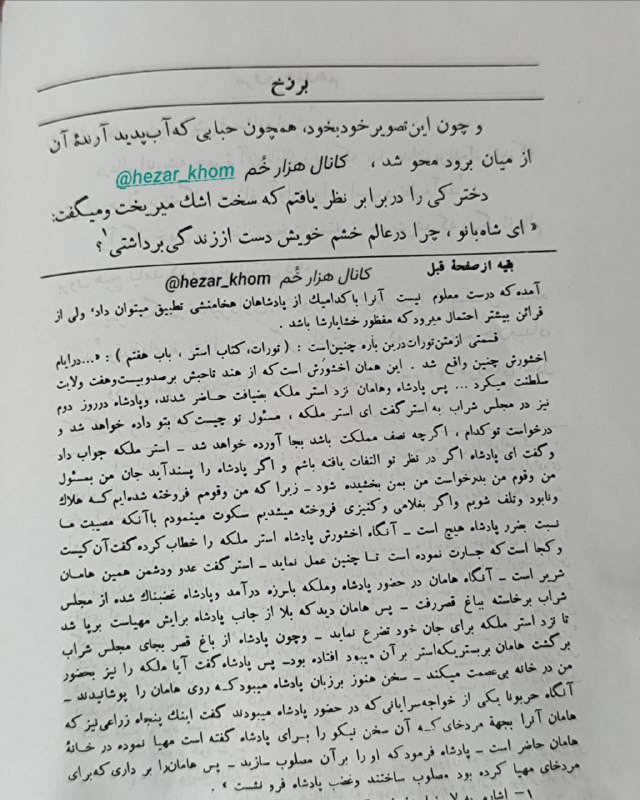 برزخ
و چون این تصویر خودبخود، همچون حبابی که آب پدید آرندۀ آن
از میان برود محو شد ، کانال هزار خُم @hezar_khom
دختر کی را در برابر نظر یافتم که سخت اشك میریخت ومیگفت:
« ای شاه‌بانو ، چرا در عالم خشم خویش دست اززندگی برداشتی¹؟
بقیه از صفحۀ قبل
کانال هزار خُم @hezar_khom
آمده که درست معلوم نیست آنرا با کدامیك از پادشاهان هخامنشی تطبیق میتوان داد، ولی از
قرائن بیشتر احتمال میرود که منظور خشایارشا باشد .
قسمتی از متن تورات درین باره چنین است : ( تورات، کتاب استر ، باب هفتم ) : «...درایام
اخشورش چنین واقع شد . این همان اخشورش است که از هند تا حبش برصدوبیست‌وهفت ولایت
سلطنت میکرد ... پس پادشاه وهامان نزد استر ملکه بضیافت حاضر شدند، وپادشاه درروز دوم
نیز در مجلس شراب به استر گفت ای استر ملکه ، مسئول تو چیست که بتو داده خواهد شد و
درخواست تو کدام ، اگرچه نصف مملکت باشد بجا آورده خواهد شد – استر ملکه جواب داد
و گفت ای پادشاه اگر در نظر تو التفات یافته باشم و اگر پادشاه را پسند آید جان من بمسئول
من وقوم من بدرخواست من بمن بخشیده شود – زیرا که من وقومم فروخته شده‌ایم که هلاك
ونابود وتلف شویم واگر بغلامی وکنیزی فروخته میشدیم سکوت مینمودم باآنکه مصیبت ما
نسبت بضرر پادشاه هیچ است – آنگاه اخشورش پادشاه استر ملکه را خطاب کرده گفت آن کیست
و کجا است که جسارت نموده است تا چنین عمل نماید – استر گفت عدو ودشمن همین هامان
شریر است – آنگاه هامان در حضور پادشاه وملکه بلرزه درآمد وپادشاه غضبناك شده از مجلس
شراب برخاسته بباغ قصر رفت – پس هامان دید که بلا از جانب پادشاه برایش مهیاست برپا شد
تا نزد استر ملکه برای جان خود تضرع نماید – وچون پادشاه از باغ قصر بجای مجلس شراب
برگشت هامان بر بستریکه استر بر آن میبود افتاده بود- پس پادشاه گفت آیا ملکه را نیز بحضور
من در خانه بی‌عصمت میکند – سخن هنوز برزبان پادشاه میبود کـه روی هامان را پوشانیدند –
آنگاه حربونا یکی از خواجه‌سرایانی که در حضور پادشاه میبودند گفت اینك پنجاه زراعی نیز که
هامان آنرا بجهة مردخای کـه آن سخن نیکو را بـرای پادشاه گفته است مهیا نموده در خـانۀ
هامان حاضر است – پادشاه فرمود که او را بر آن مصلوب سازید – پس هامان‌را بر داری که برای
مردخای مهیا کرده بود مصلوب ساختند وغضب پادشاه فرو نشست » .
۱– اشاره به